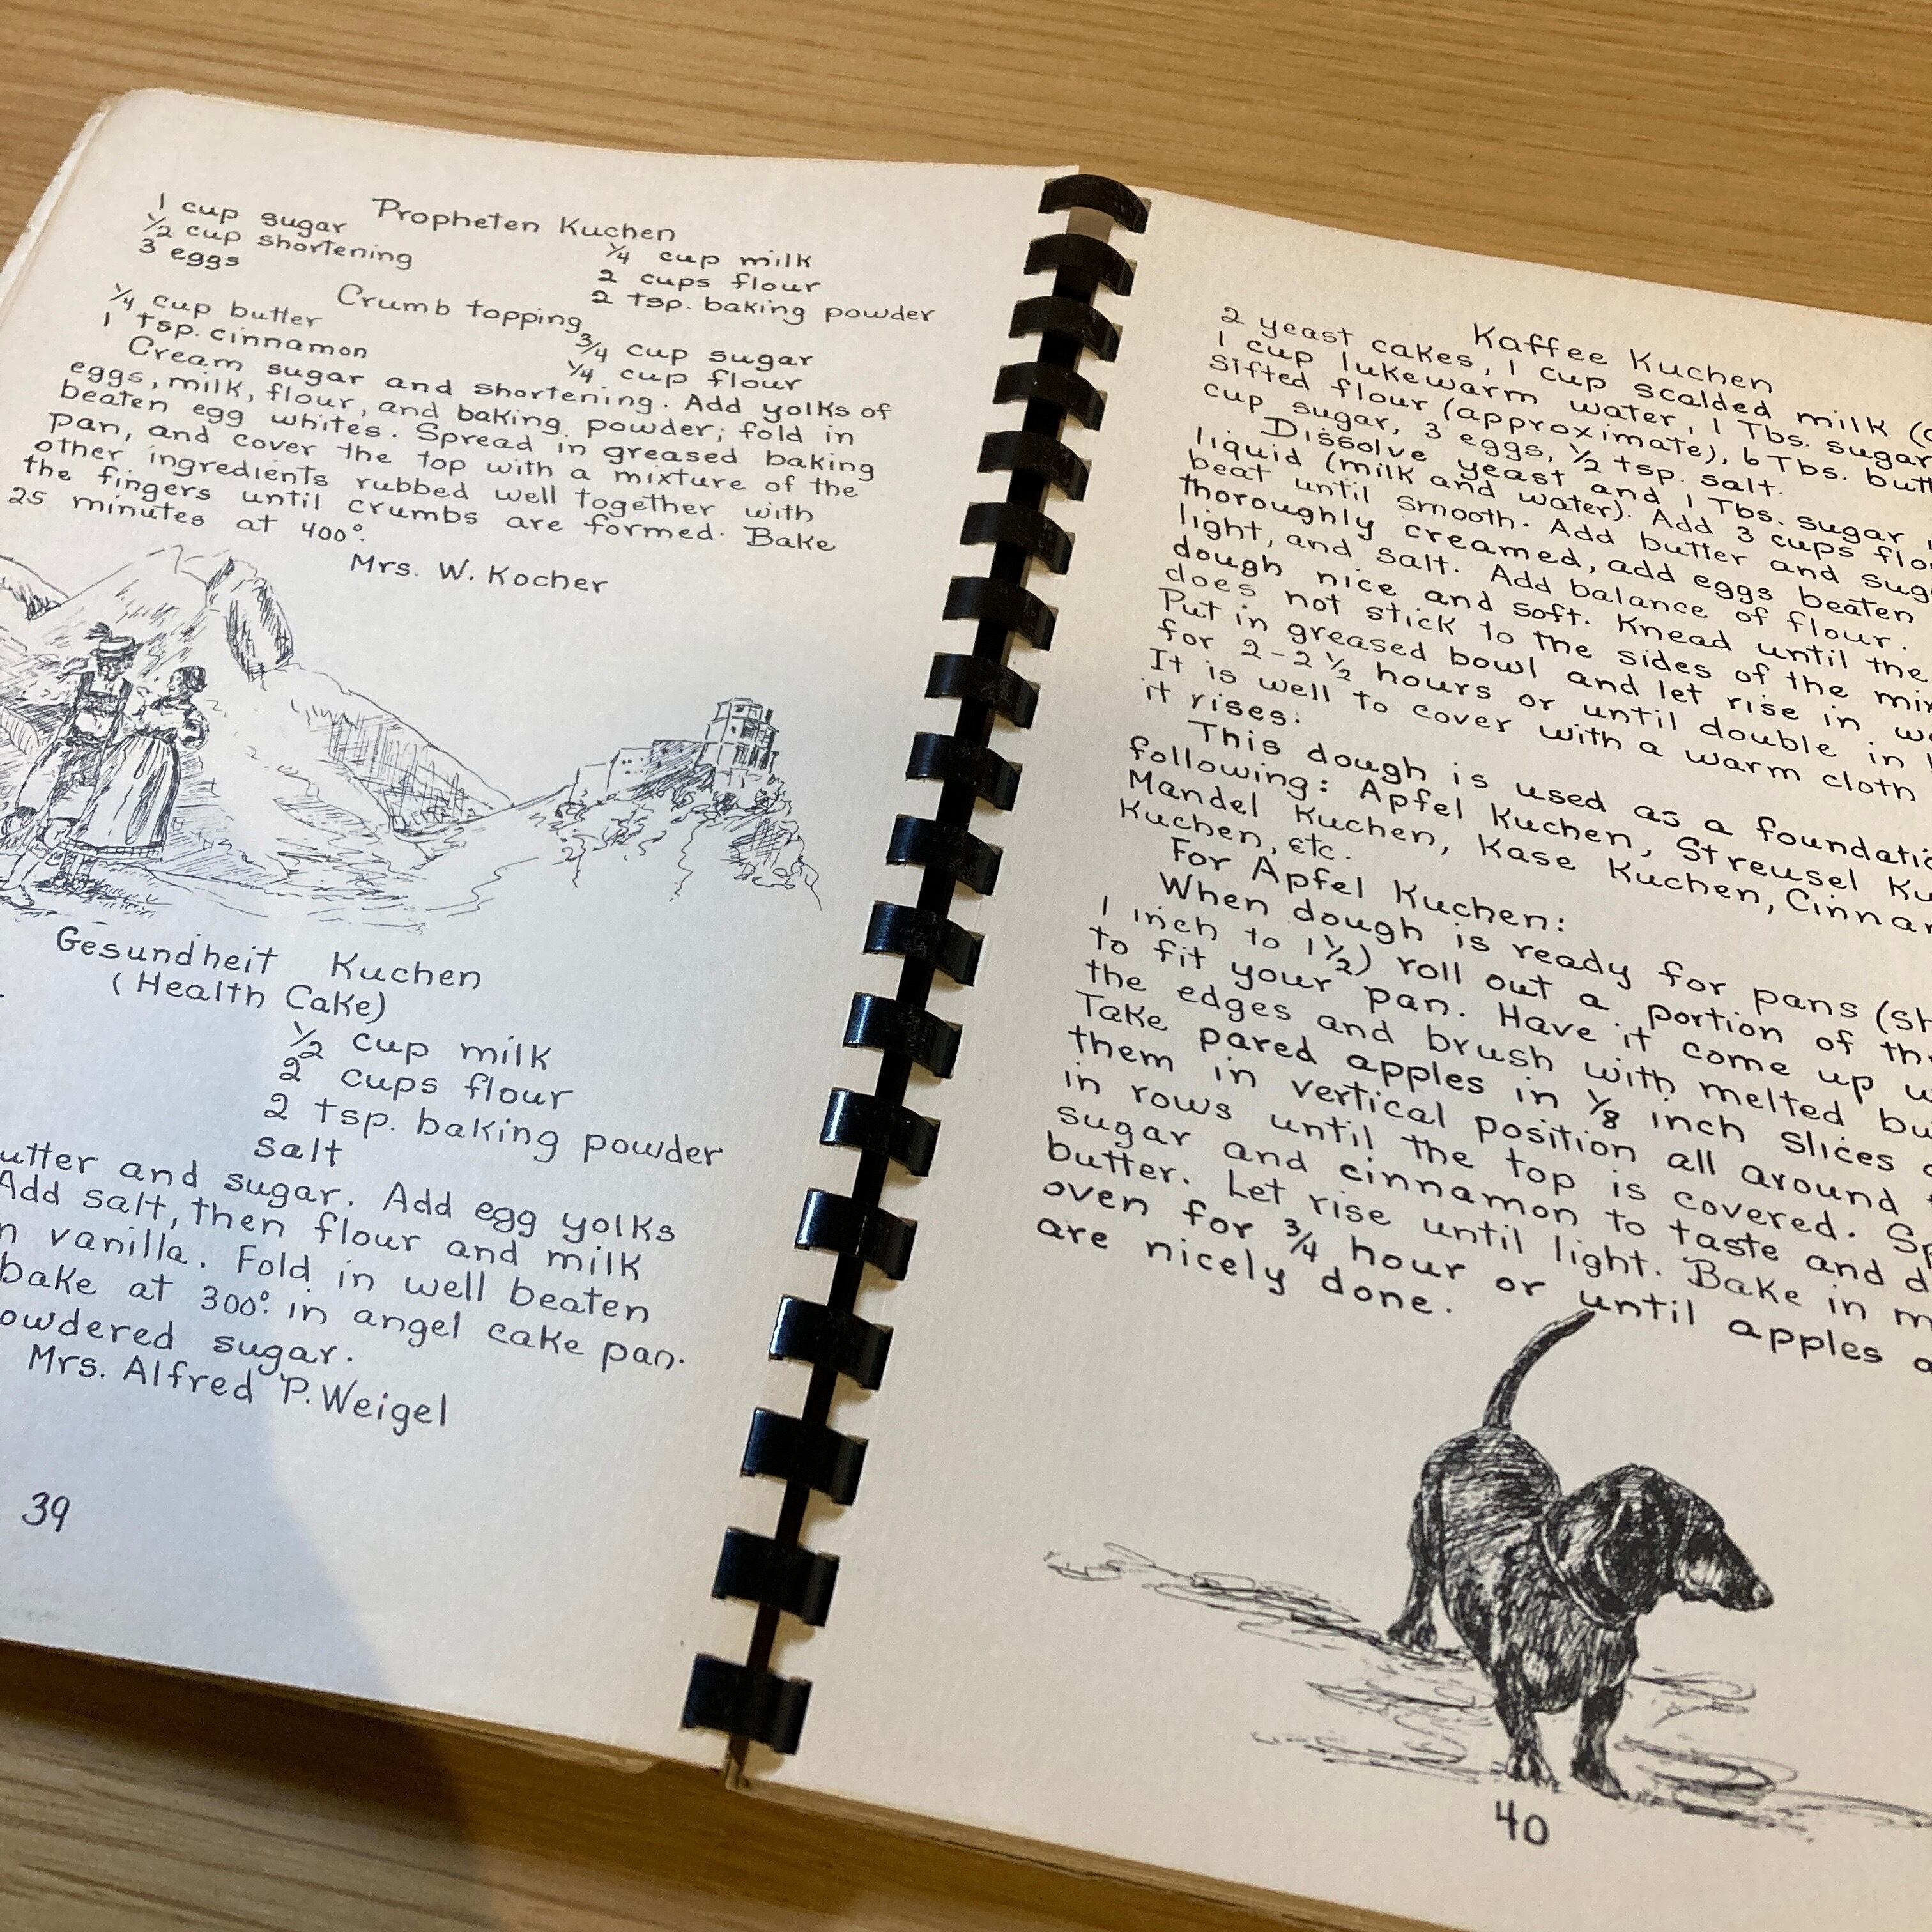 Propheten Kuchen
1 cup sugar
½ cup shortening
3 eggs
¼ cup milk
2 cups flour
2 tsp. baking powder
Crumb topping
¼ cup butter
1 tsp. cinnamon
¾ cup sugar
¼ cup flour
Cream sugar and shortening. Add yolks of
eggs, milk, flour, and baking powder; fold in
beaten egg whites. Spread in greased baking
pan, and cover the top with a mixture of the
other ingredients rubbed well together with
the fingers until crumbs are formed. Bake
25 minutes at 400°.
Mrs. W. Kocher
Gesundheit Kuchen
(Health Cake)
½ cup milk
2 cups flour
2 tsp. baking powder
salt
and sugar. Add egg yolks
Add salt, then flour and milk
vanilla. Fold in well beaten
bake at 300° in angel cake pan.
sugar.
Mrs. Alfred P. Weigel
39
Kaffee Kuchen
2 yeast cakes, 1 cup scalded milk
1 cup lukewarm water, 1 Tbs. sugar
sifted flour (approximate), 6 Tbs.
cup sugar, 3 eggs, ½ tsp. salt.
Dissolve yeast and 1 Tbs. sugar
liquid (milk and water). Add 3 cups
beat until smooth. Add butter and
thoroughly creamed, add eggs beaten
light, and salt. Add balance of flour.
dough nice and soft. Knead until the
does not stick to the sides of the
Put in greased bowl and let rise in
for 2-2½ hours or until double in
It is well to cover with a warm cloth
it rises.
This dough is used as a
following: Apfel Kuchen, Streusel
Mandel Kuchen, Kase Kuchen,
Kuchen, etc.
For Apfel Kuchen:
When dough is ready for pans
1 inch to 1½) roll out a portion of
to fit your pan. Have it come up
the edges and brush with melted
Take pared apples in ⅛ inch slices
them in vertical position all around
in rows until the top is covered.
sugar and cinnamon to taste and
butter. Let rise until light. Bake in
oven for ¾ hour or until apples
are nicely done.
40